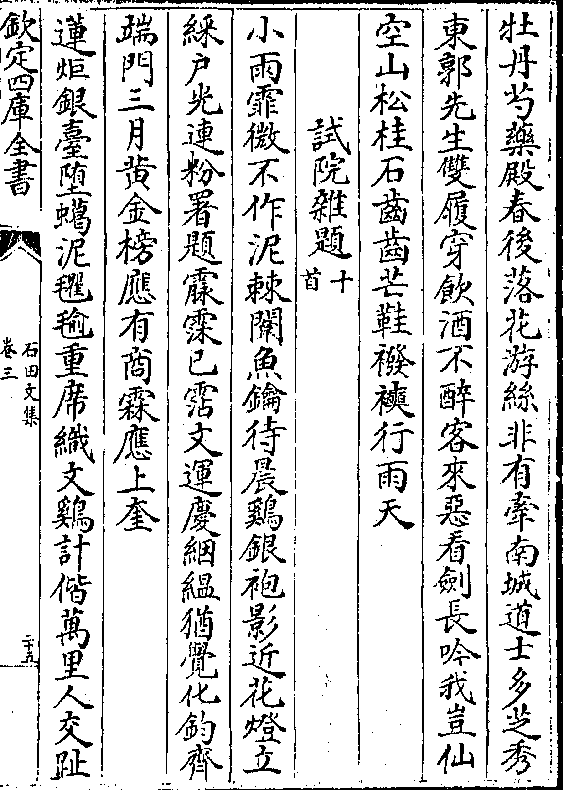 牡丹芍藥殿春後落花游絲非有牽南城道士多芝秀
東郭先生雙履穿飲酒不醉客來惡看劍長吟我豈仙
空山松桂石齒齒芒鞋襏襫行雨天
試院雜題十首
小雨霏微不作泥棘闈魚鑰待晨雞銀袍影近花燈立
綵户光連粉署題霡霂已霑文運慶絪縕猶覺化鈞齊
端門三月黄金榜應有商霖應上奎
蓮炬銀臺堕蠟泥氍毹重席織文鷄計偕萬里人交趾
欽定四庫全書
石田文集
卷三
二十五